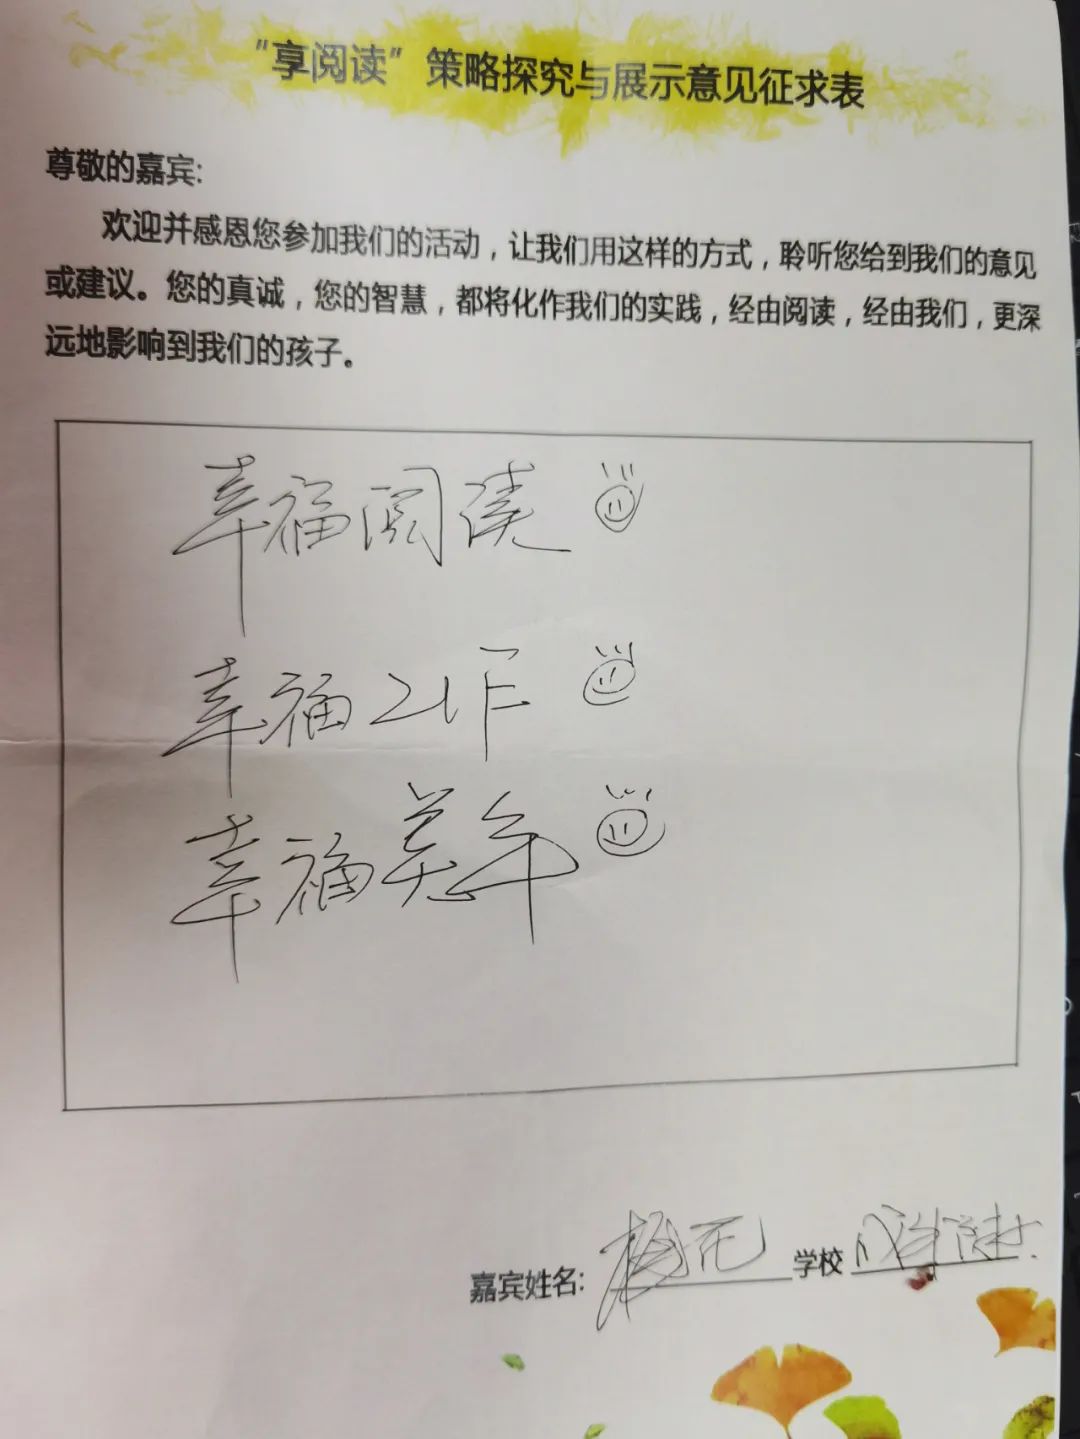 “享阅读”策略探究与展示意见征求表
尊敬的嘉宾:
欢迎并感恩您参加我们的活动，让我们用这样的方式，聆听您给到我们的意见
或建议。您的真诚，您的智慧，都将化作我们的实践，经由阅读，经由我们，更深
远地影响到我们的孩子。
幸福阅读
幸福工作
幸福美年
嘉宾姓名: 学校